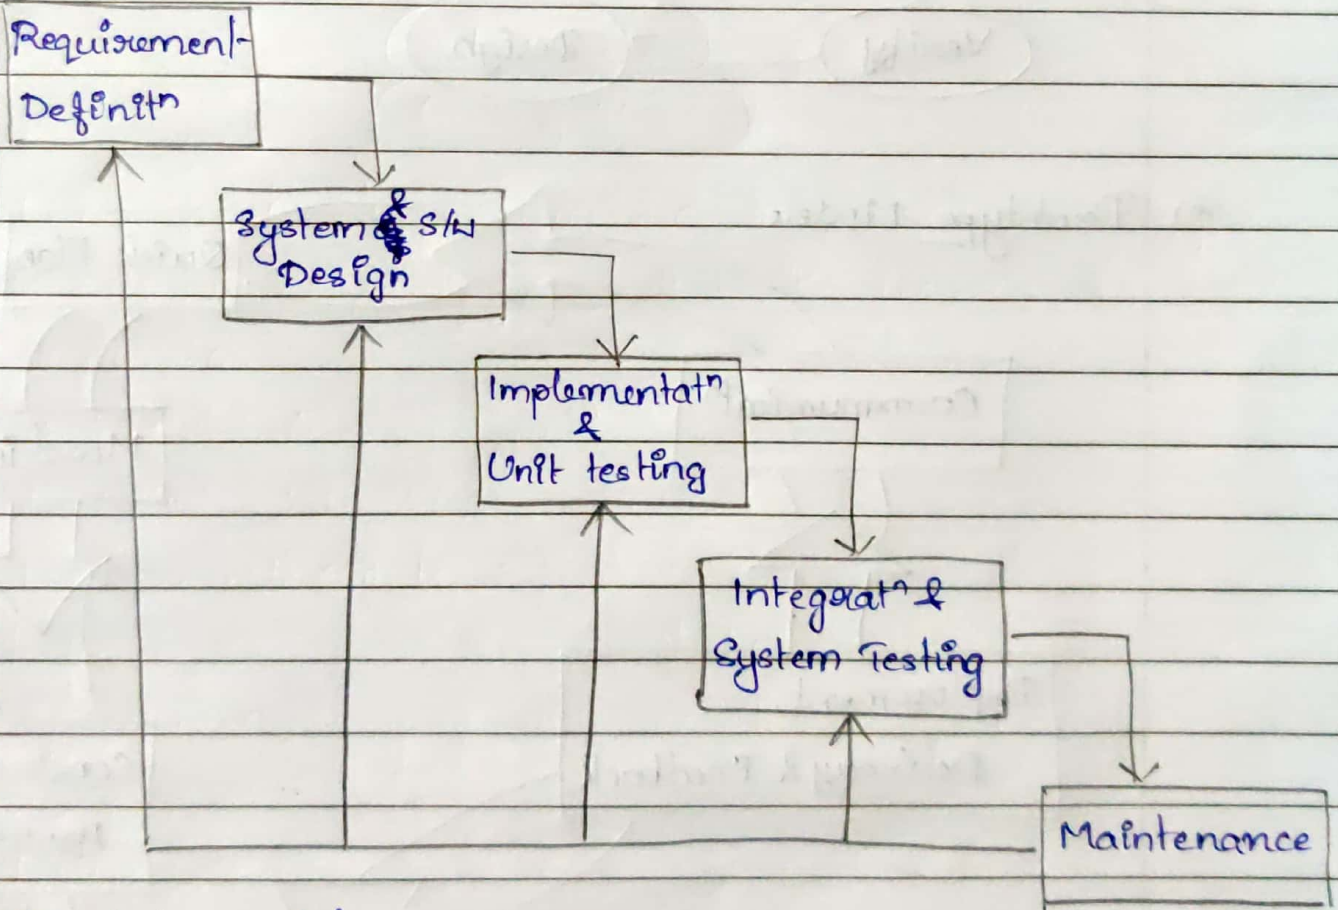 Requirement
Definitⁿ
System & S/W
Design
Implementatⁿ
&
Unit testing
Integratⁿ &
System Testing
Maintenance